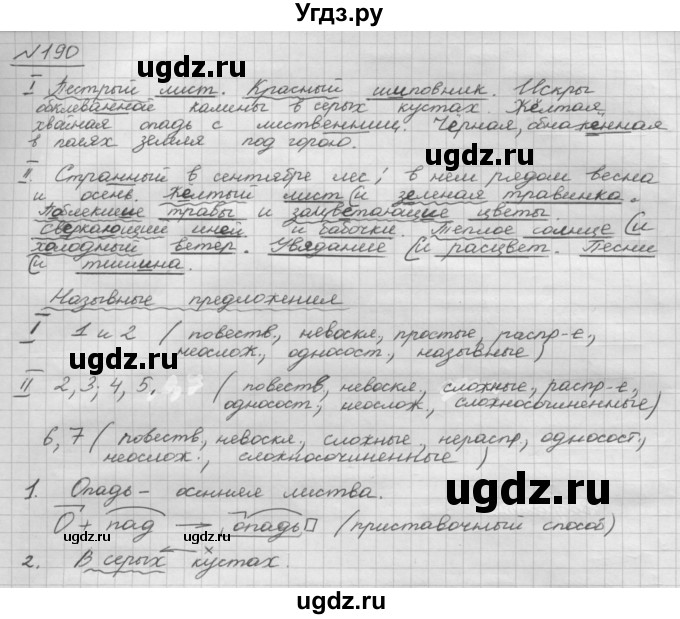 Угдз.ру
№190
I Пестрый лист. Красный шиповник. Искры
обклеванной калины в серых кустах. Желтая
хвойная опадь с лиственниц. Чёрная, обнаженная
в полях земля под горою.
II Странный в сентябре лес: в нем рядом весна
и осень. Желтый лист и зеленая травинка.
Поблекшие травы и зацветающие цветы.
Сверкающий иней и бабочки. Теплое солнце и
холодный ветер. Увядание и расцвет. Песни
и тишина.
Назывные предложения
I 1 и 2 (повеств., невоскл., простые, распр-е.,
неослож., односост., назывные)
II 2, 3, 4, 5, (повеств., невоскл., сложные, распр-е,
односост., неослож., сложносочиненные)
6, 7 (повеств., невоскл., сложные, нераспр., односост.,
неослож., сложносочиненные)
1. Опадь – осенняя листва.
О + пад → опадь (приставочный способ)
2. В серых кустах.
uqdz.ru
uqdz.ru
uqdz.ru
uqdz.ru
uqdz.ru
uqdz.ru
uqdz.ru